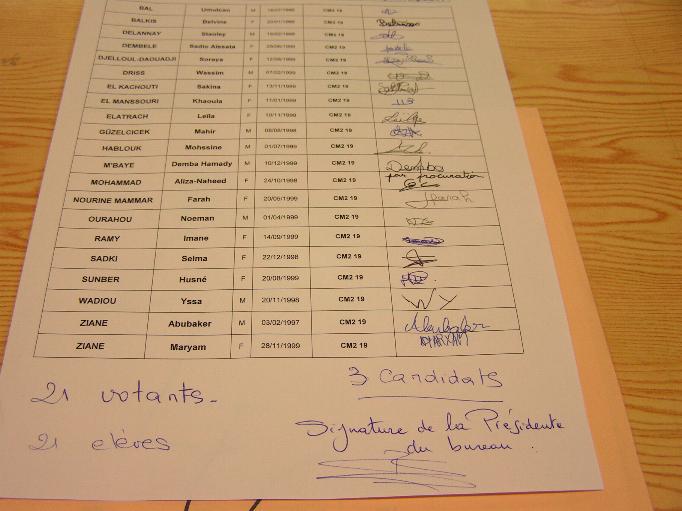 BAL Umulcan M CM2 19
BALKIS Belvine F 20/01/1999 CM2 19
DELANNAY Stanley M CM2 19
DEMBELE Sadio Aissata F CM2 19
DJELLOUL-DAOUADJI Soraya F CM2 19
DRISS Wassim M 07/02/1999 CM2 19
EL KACHOUTI Sakina F 13/11/1999 CM2 19
EL MANSSOURI Khaoula F 11/01/1999 CM2 19
ELATRACH Leïla F 10/11/1999 CM2 19
GÜZELCICEK Mahir M 08/08/1998 CM2 19
HABLOUK Mohssine M 01/07/1999 CM2 19
M'BAYE Demba Hamady M 10/12/1999 CM2 19 Demba
MOHAMMAD Aliza-Naheed F 24/10/1998 CM2 19 par procuration
NOURINE MAMMAR Farah F 20/05/1999 CM2 19 farah
OURAHOU Noeman M 01/04/1999 CM2 19
RAMY Imane F 14/09/1999 CM2 19
SADKI Selma F 22/12/1998 CM2 19
SUNBER Husné F 20/08/1999 CM2 19
WADIOU Yssa M 20/11/1998 CM2 19 WY
ZIANE Abubaker M 03/02/1997 CM2 19 Abubaker
ZIANE Maryam F 28/11/1999 CM2 19 MARYAM
21 votants-
3 candidats
21 elèves
Signature de la Présidente
du bureau.